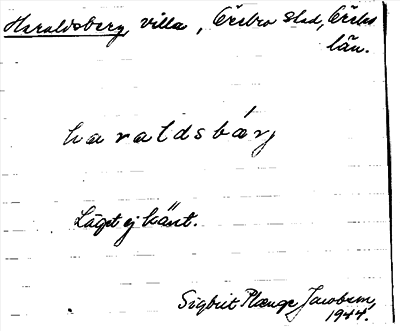 Haraldsberg, villa, Örebro stad, Örebro
län.
haraldsbárj
Läget ej känt.
Sigbrit Plænge Jacobson,
1944.